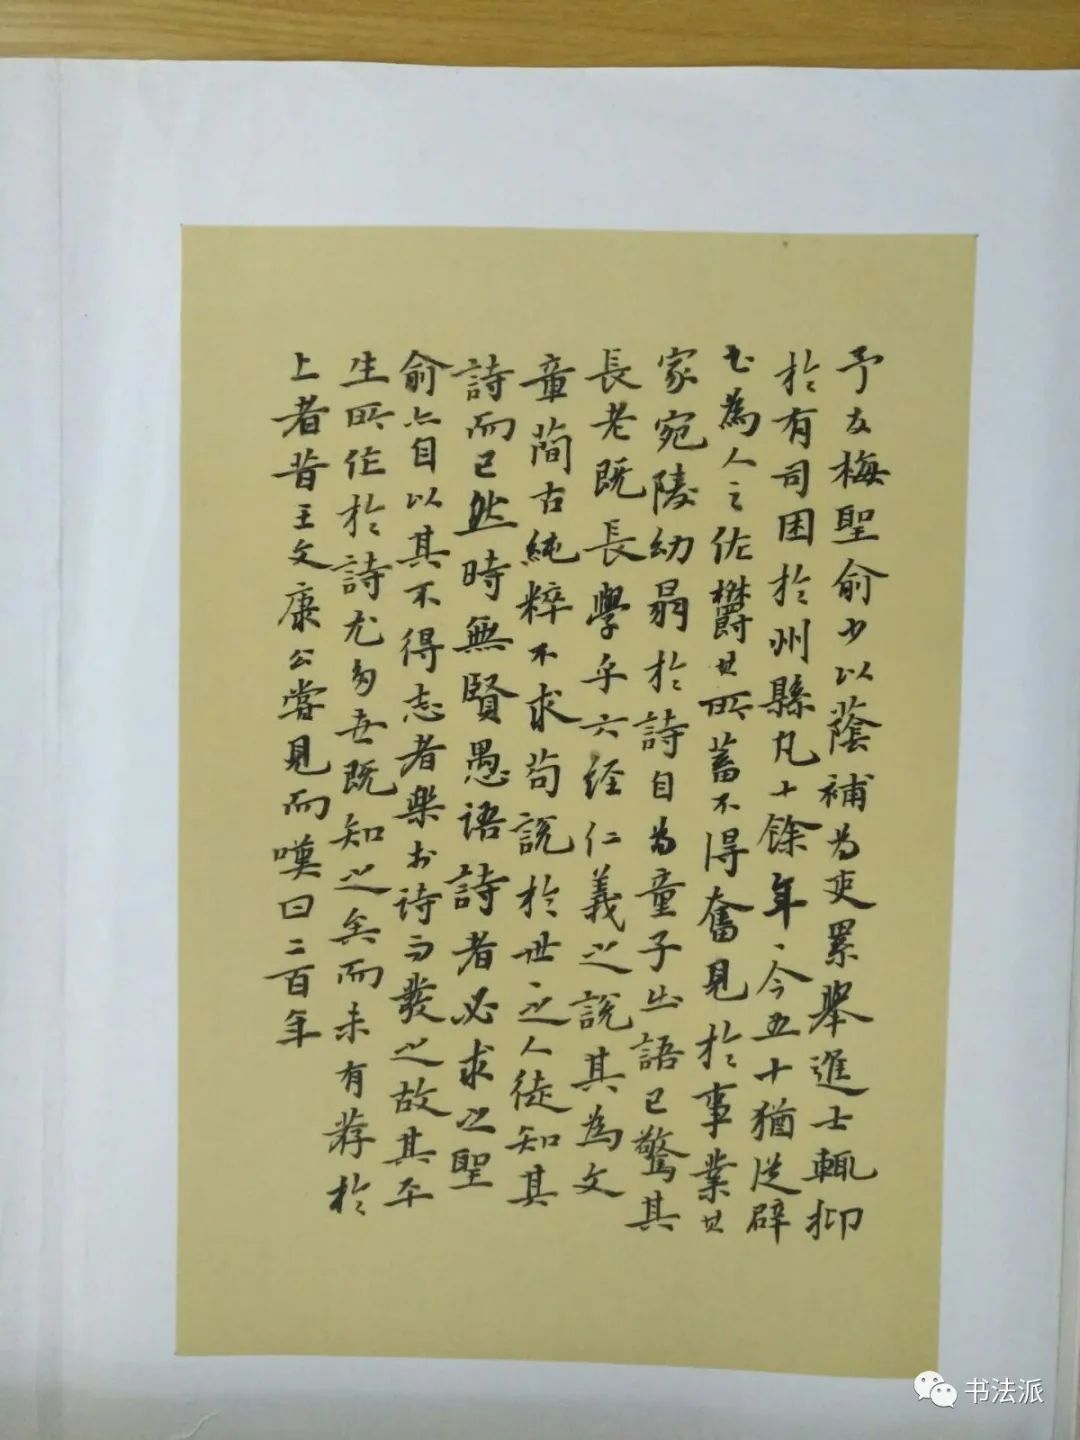 予友梅聖俞少以蔭補为吏累舉進士輒抑
於有司困於州縣凡十餘年今五十猶従辟
书為人之佐欝其所蓄不得奮見於事業其
家宛陵幼習於詩自为童子出語已驚其
長老既長學乎六经仁義之說其為文
章簡古純粹不求苟說於世之人徒知其
詩而已然時無賢愚語詩者必求之聖
俞亦自以其不得志者樂於诗而發之故其平
生所作於詩尤多吾既知之矣而未有荐於
上者昔王文康公嘗見而嘆曰二百年
书法派